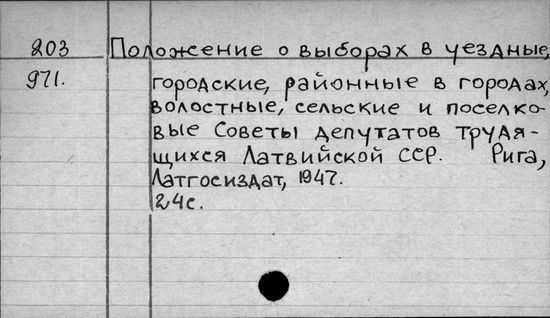 203 Положение о выборах в уездные,
971. городские, районные в городах,
волостные, сельские и поселко-
вые Советы депутатов трудя-
щихся Латвийской ССР. Рига,
Латгосиздат, 1947.
24с.